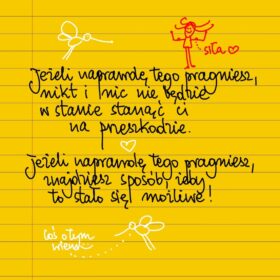 siła
Jeżeli naprawdę tego pragniesz,
nikt i nic nie będzie
w stanie stanąć ci
na przeszkodzie.
Jeżeli naprawdę tego pragniesz,
znajdziesz sposób, żeby
to stało się możliwe!
coś o tym
wiem